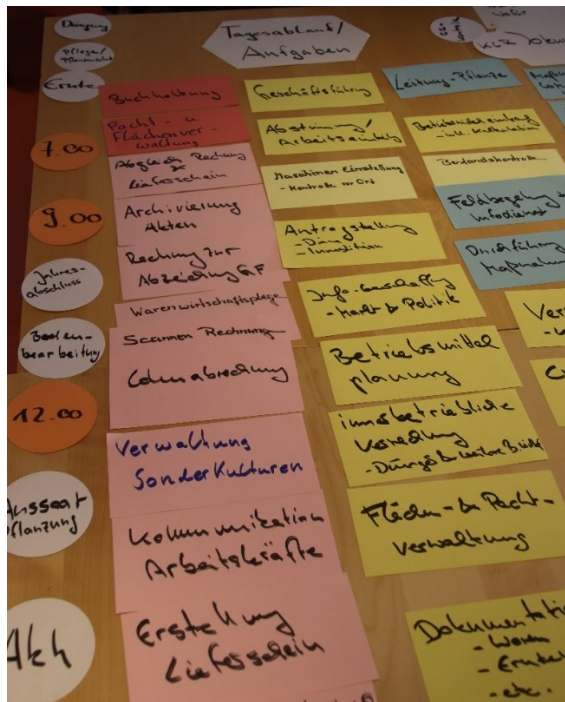 Düngung
Pflege/
Pflanzenschutz
Ernte
7.00
9.00
Jahres-
abschluss
Boden-
bearbeitung
12.00
Aussaat
Pflanzung
Akh
Tagesablauf/
Aufgaben
Buchhaltung
Pacht- u
Flächenver-
waltung
Abgleich Rechnung
Lieferschein
Archivierung
Akten
Rechnung zur
Abzeichnung GF
Warenwirtschaftspflege
Scannen Rechnung
Lohnabrechnung
Verwaltung
Sonderkulturen
Kommunikation
Arbeitskräfte
Erstellung
Lieferschein
Geschäftsführung
Abstimmung/
Arbeitseinteilg
Maschinen Einstellung
- Kontrolle vor Ort
Antragstellung
- Investition
Info-beschaffg
- Markt & Politik
Betriebsmittel
planung
innerbetriebliche
Flächen- & Pacht-
verwaltung
Dokumentatio
- etc.
Leitung Pflanze
Betriebsmitteleinkauf
- inkl. Kalkulation
Bestandskontrolle
Feldbegehung
Infodienst
Durchführung
Maßnahm
Ver